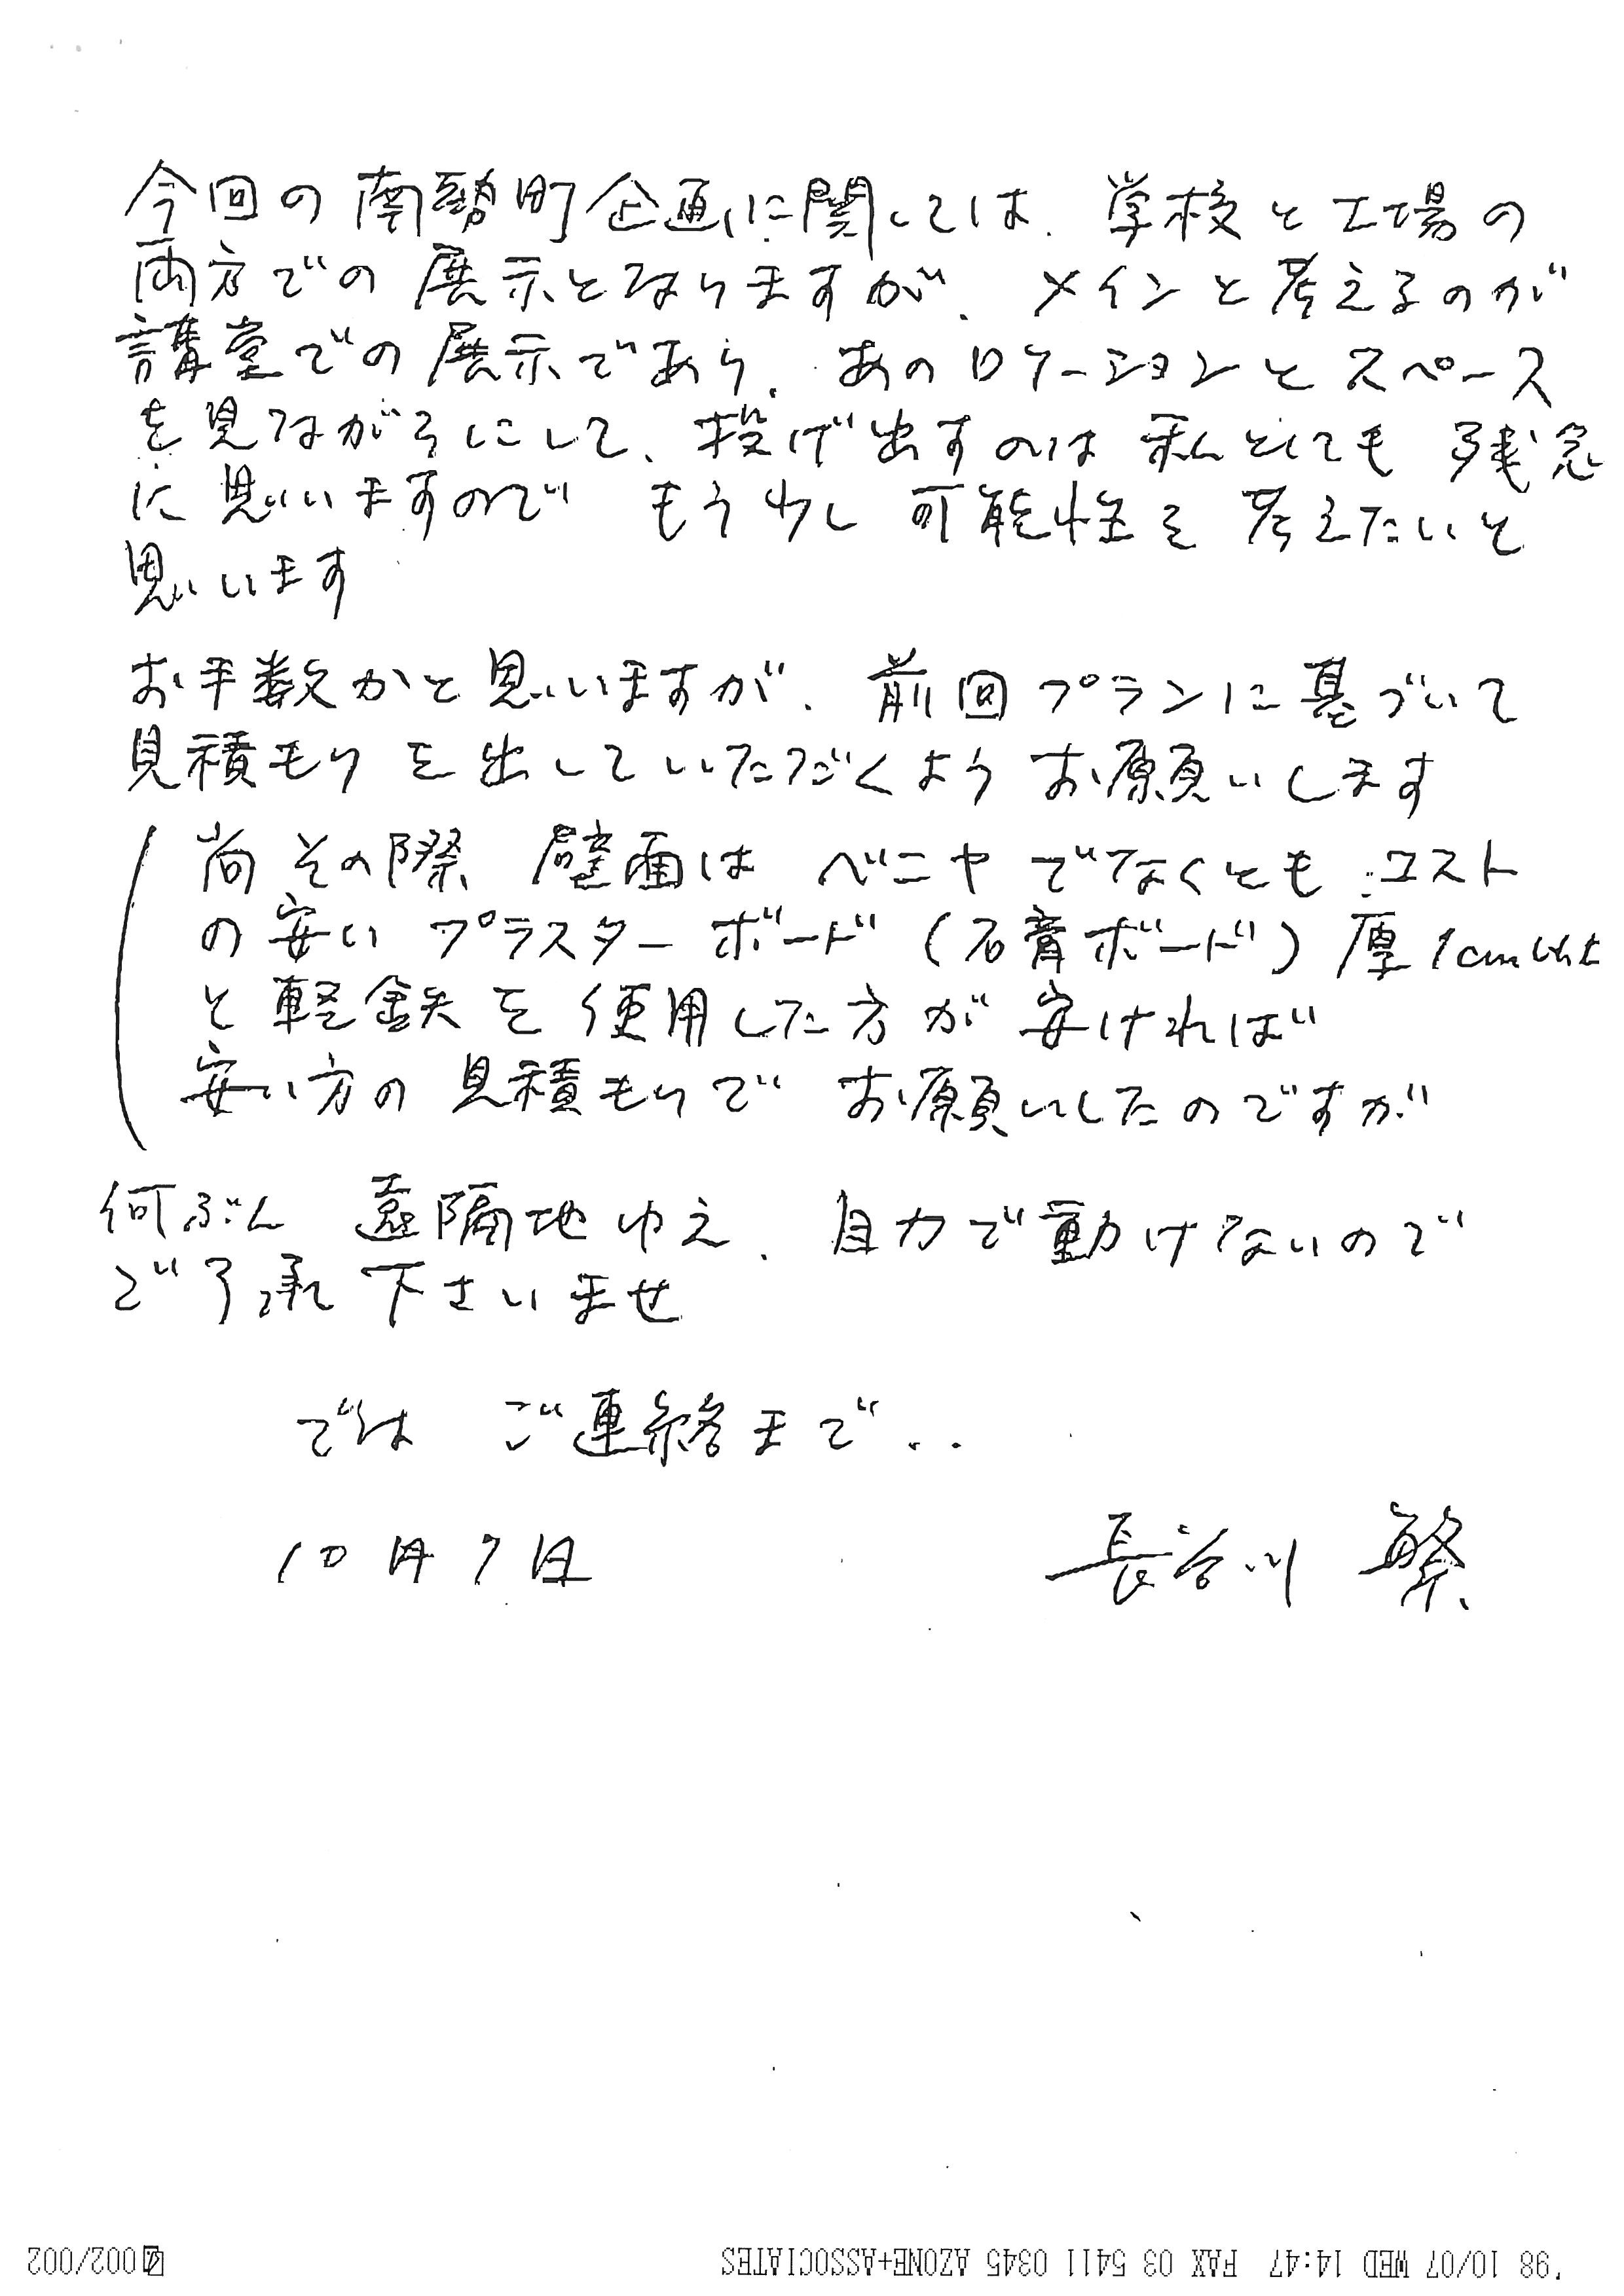 今回の南勢町企画に関しては、学校と工場の
両方での展示となりますが、メインと考えるのが
講堂での展示であり、あのロケーションとスペース
を見ながらにして、投げ出すのは私としても残念
に思いますので もう少し可能性を考えたいと
思います
お手数かと思いますが、前回プランに基づいて
見積もりを出していただくようお願いします
(尚その際 壁面は ベニヤでなくとも コスト
の安い プラスターボード(石膏ボード)厚1cm以上
と軽鉄を使用した方が安ければ
安い方の見積もりで お願いしたのですが
何ぶん 遠隔地ゆえ、自力で動けないので
ご了承下さいませ
では ご連絡まで..
10月7日 長谷川 繁
'98 10/07 WED 14:47 FAX 03 5411 0345 AZONE+ASSOCIATES 002/002